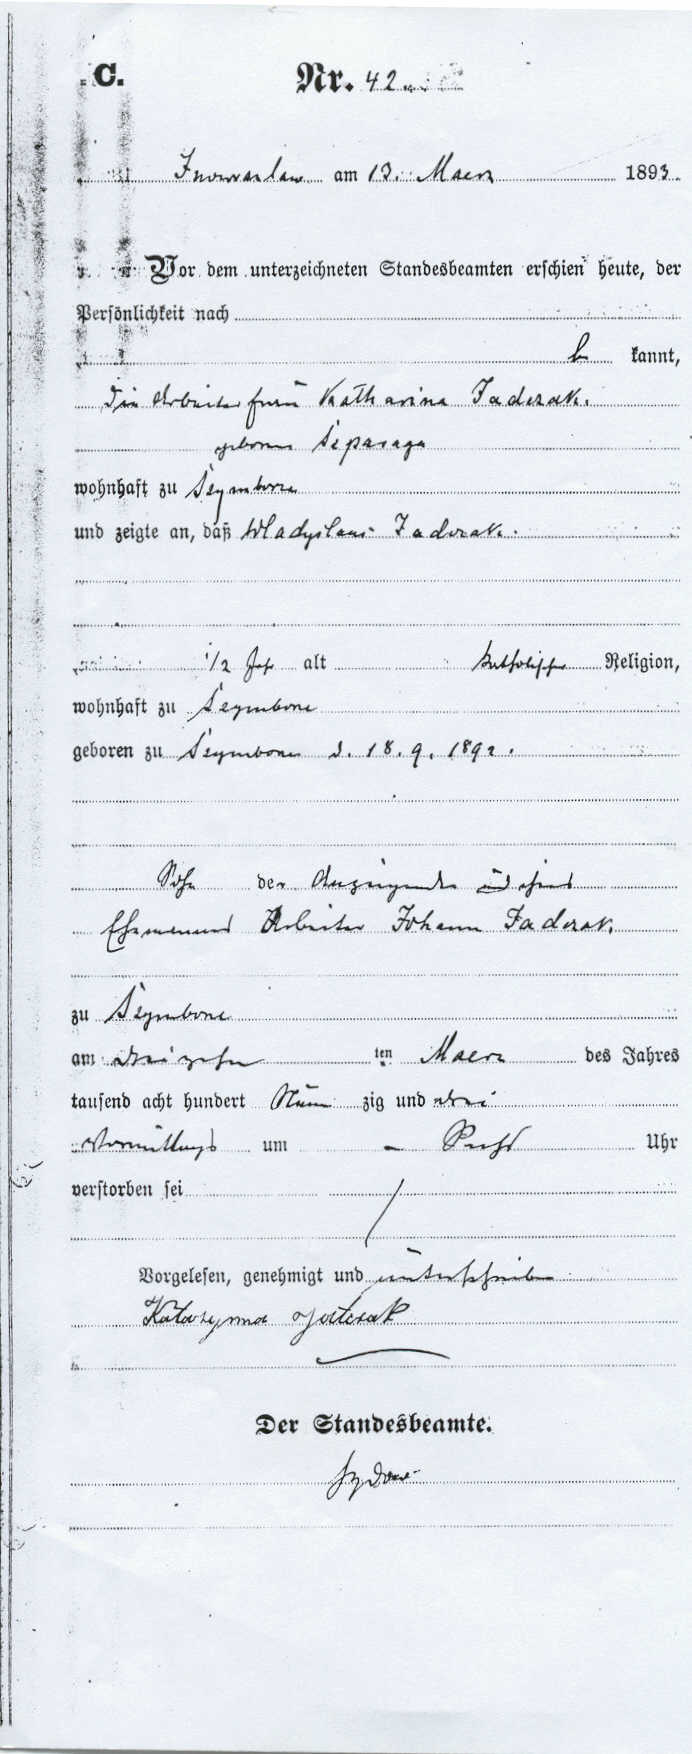 C.
Nr. 42.
Inowrazlaw am 13. Maerz 1893.
Vor dem unterzeichneten Standesbeamten erschien heute, der
Persönlichkeit nach
be kannt,
die Arbeiterfrau Katharina Jaderak.
geborene
wohnhaft zu Szymborze
und zeigte an, daß Wladyslaus Jaderak.
1/2 Jahr alt katholischer Religion,
wohnhaft zu Szymborze
geboren zu Szymborze d. 18. 9. 1892.
Sohn der Anzeigenden und ihres
Ehemannes Arbeiter Johann Jaderak.
zu Szymborze
am dreizehn ten Maerz des Jahres
tausend acht hundert Neun zig und drei
Vormittags um Sechs Uhr
verstorben sei
Vorgelesen, genehmigt und unterschrieben
Katarzyna
Der Standesbeamte.